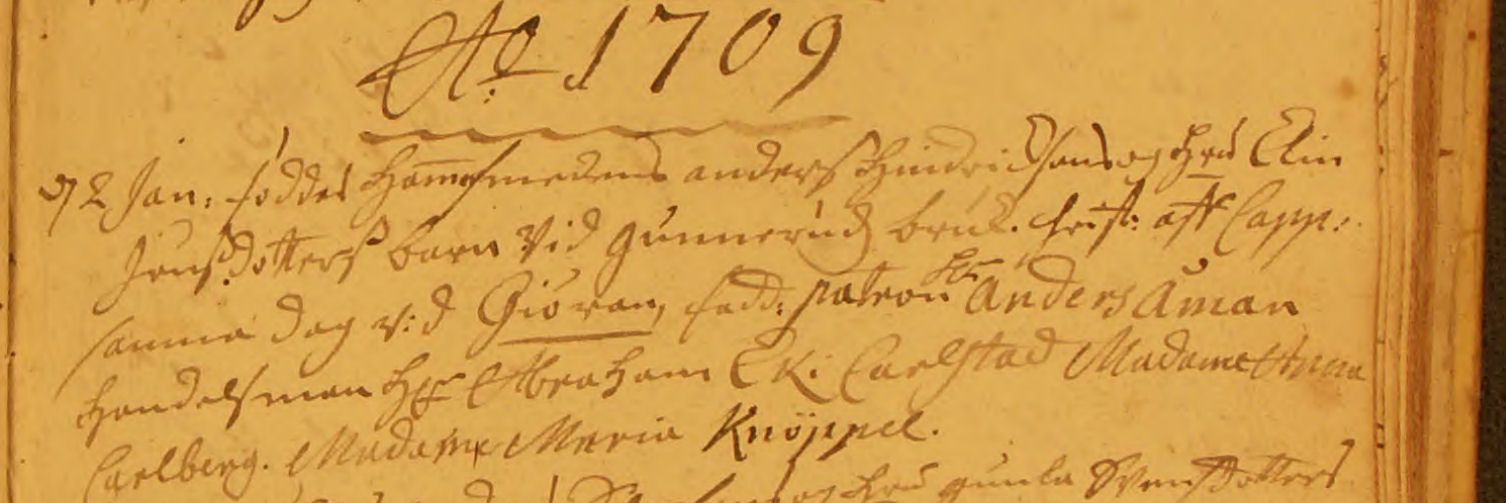 Ao 1709
d 2 Jan: föddes Hamsmedens anders Hindricksons og hus Elin
Jönßdotters barn vid gunnerudz bruk. Christ: aff Capp:
samma dag v:d Giöran, fadd: patron Hr Anders Åman
Handelsman Hr Abraham Ek i Carlstad Madame Anna
Carlberg. Madame Maria Knöppel.
og hus gunla Svensdotters